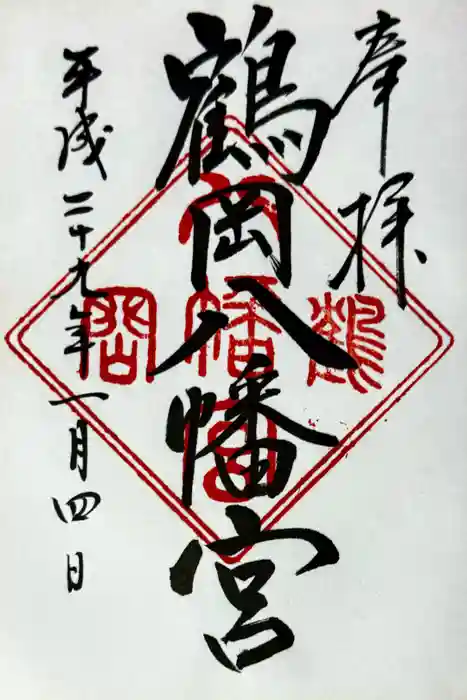 奉拝
鶴岡八幡宮
平成二十九年一月四日
鶴
八
幡
宮
岡